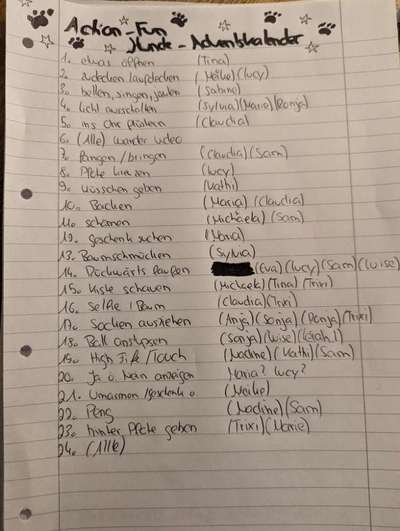 Action-Fun
Hunde-Adventskalender
1. etwas öffnen (Tina)
2. zudecken (Meike)(Lucy)
3. bellen, singen, jaulen (Sabine)
4. Licht ausschalten (Sylvia)(Maria)(Ronja)
5. ins Ohr flüstern (Claudia)
6. (Alle) Video
7. Fangen/bringen (Claudia)(Sam)
8. Pfote (Lucy)
9. Küsschen geben (Kathi)
10. Backen (Maria)(Claudia)
11. schämen (Michaela)(Sam)
12. Geschenk suchen (Maria)
13. Baumschmücken (Sylvia)
14. Rückwärts laufen (Eva)(Lucy)(Sam)(Luise)
15. Kiste schauen (Michaela)(Tina)(Trixi)
16. Selfie / Baum (Claudia)(Trixi)
17. Socken ausziehen (Anja)(Sonja)(Ronja)(Trixi)
18. Ball anstupsen (Sonja)(Luise)
19. High Five/Touch (Nadine)(Kathi)(Sam)
20. Ja o Nein anzeigen Maria? Lucy?
21. Umarmen/Geschenk o (Meike)
22. Peng (Nadine)(Sam)
23. hinter Pfote geben (Trixi)(Marie)
24. (Alle)